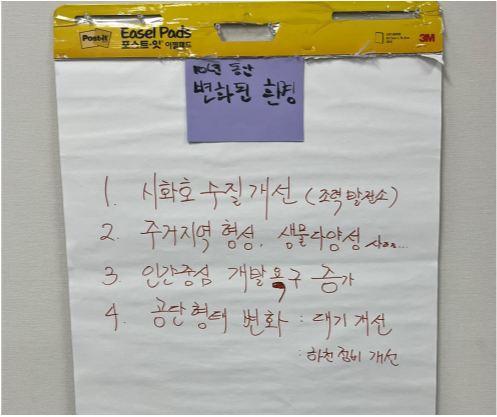 Post-it
Easel Pads
포스트-잇 이젤패드
3M
10년 동안
변화된 환경
1. 시화호 수질개선 (조력발전소)
2. 주거지역 형성, 생물다양성
3. 인간중심 개발욕구 증가
4. 공단형태 변화 : 대기개선
: 하천정비 개선